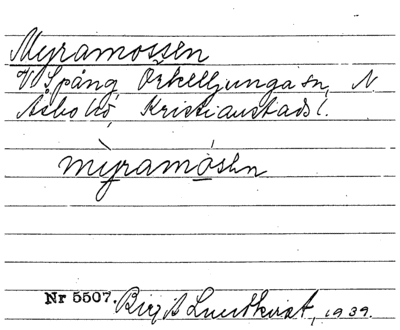 Myramossen
V Spång, Örkelljunga sn, N.
Åsbo hd, Kristianstads l.
mỳramósen
Nr 5507. Birgit Lundkvist, 1939.